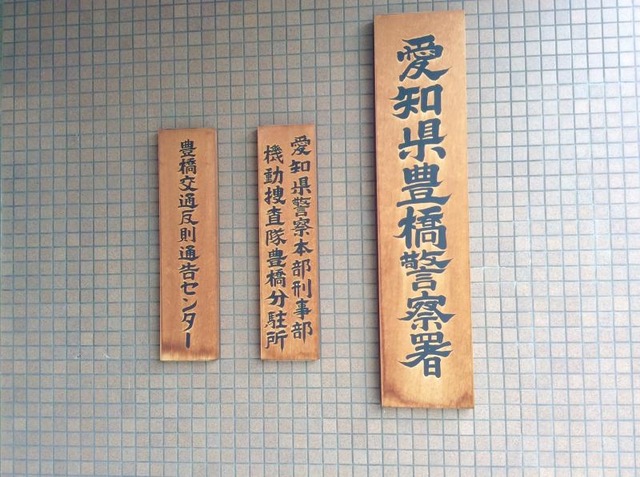 愛知県豊橋警察署
愛知県警察本部刑事部
機動捜査隊豊橋分駐所
豊橋交通反則通告センター